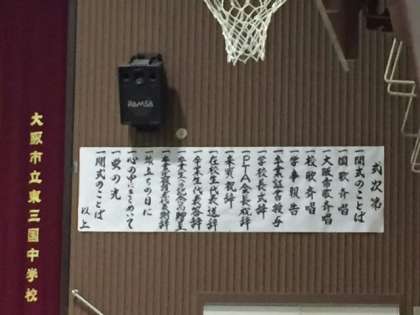 大阪市立東三国中学校
RAMSA
式次第
一開式のことば
一国歌斉唱
一大阪市歌斉唱
一校歌斉唱
一学事報告
一卒業証書授与
一学校長式辞
一PTA会長祝辞
一来賓祝辞
一在校生代表送辞
一卒業生代表答辞
一旅立ちの日に
一蛍の光
一閉式のことば
以上